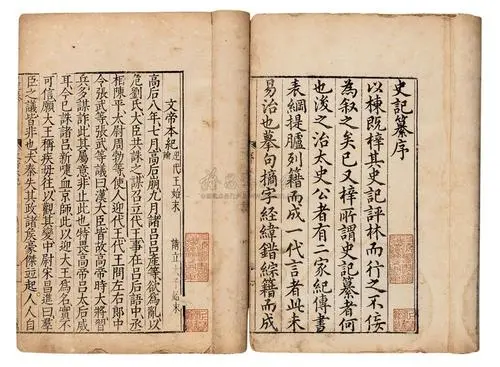 史記纂序
以棟既梓其史記評林而行之不佞
為叙之矣已又梓所謂史記纂者何
也後之治太史公者有二家紀傳書
表綱提臚列籍而成一代言者此未
易治也摹句摘字經緯錯綜籍而成
文帝本紀 迎代王始末
高后八年七月高后崩九月諸呂呂產等欲為亂以
危劉氏大臣共誅之謀召立代王事在呂后語中丞
相陳平太尉周勃等使人迎代王代王問左右郎中
令張武等張武等議曰漢大臣皆故高帝時大將習
兵多謀詐此其屬意非止此也特畏高帝呂后威
耳今已誅諸呂新喋血京師此以迎大王為名實不
可信願大王稱疾毋往以觀其變中尉宋昌進曰羣
臣之議皆非也夫秦失其政諸矦豪傑並起人人自